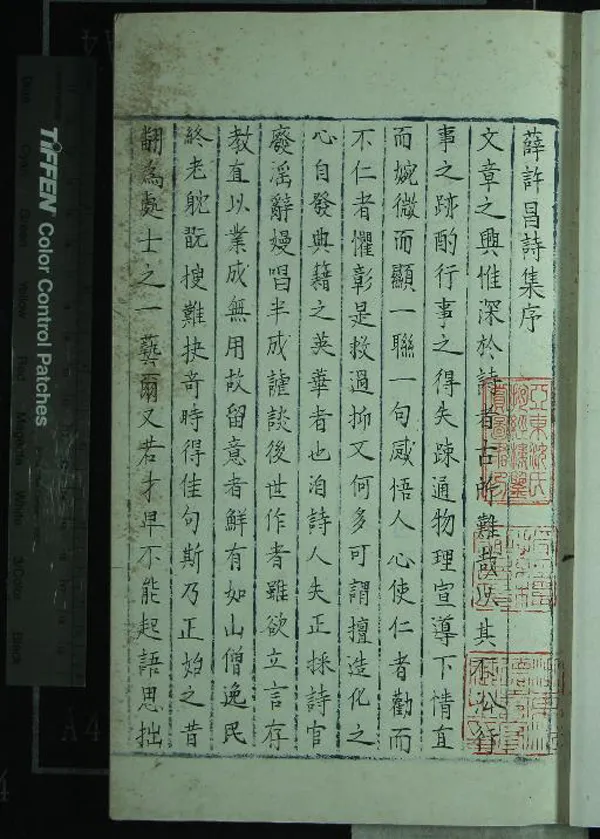 薛許昌詩集序
文章之興惟深於詩者古所難哉以其
事之跡酌行事之得失疎通物理宣導下情直
而婉微而顯一聯一句感悟人心使仁者勸而
不仁者懼彰是救過抑又何多可謂擅造化之
心自發典籍之英華者也洎詩人失正採詩官
廢淫辭嫚唱半成謔談後世作者雖欲立言存
教直以業成無用故留意者鮮有如山僧逸民
終老耽翫搜難抉奇時得佳句斯乃正始之昔
翻為處士之一藝爾又若才卑不能起語思拙
TIFFEN Color Control Patches
Green
Yellow
Red
Magenta
White
3/Color
Black